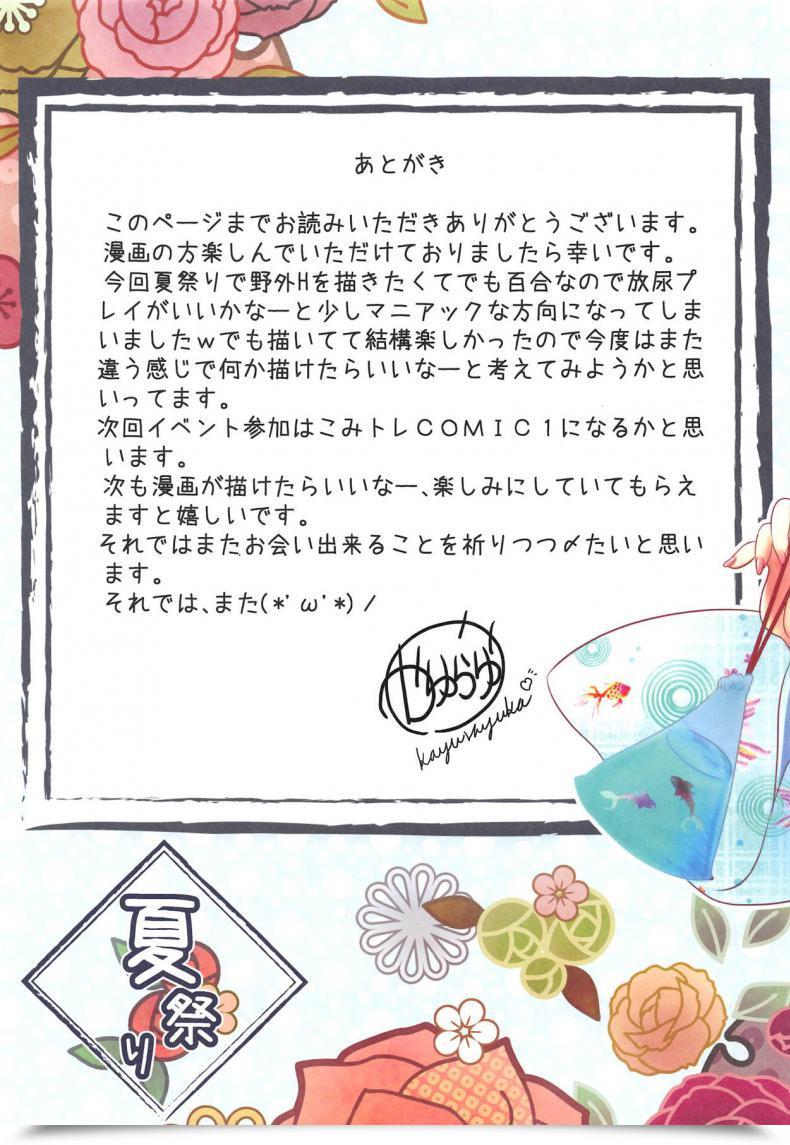 あとがき
このページまでお読みいただきありがとうございます。
漫画の方楽しんでいただけておりましたら幸いです。
今回夏祭りで野外Hを描きたくてでも百合なので放尿プ
レイがいいかなーと少しマニアックな方向になってしま
いましたｗでも描いてて結構楽しかったので今度はまた
違う感じで何か描けたらいいなーと考えてみようかと思
いってます。
次回イベント参加はこみトレＣＯＭＩＣ１になるかと思
います。
次も漫画が描けたらいいなー、楽しみにしていてもらえ
ますと嬉しいです。
それではまたお会い出来ることを祈りつつ〆たいと思い
ます。
それでは、また(*' ω'*) /
kayurayuka
夏祭り